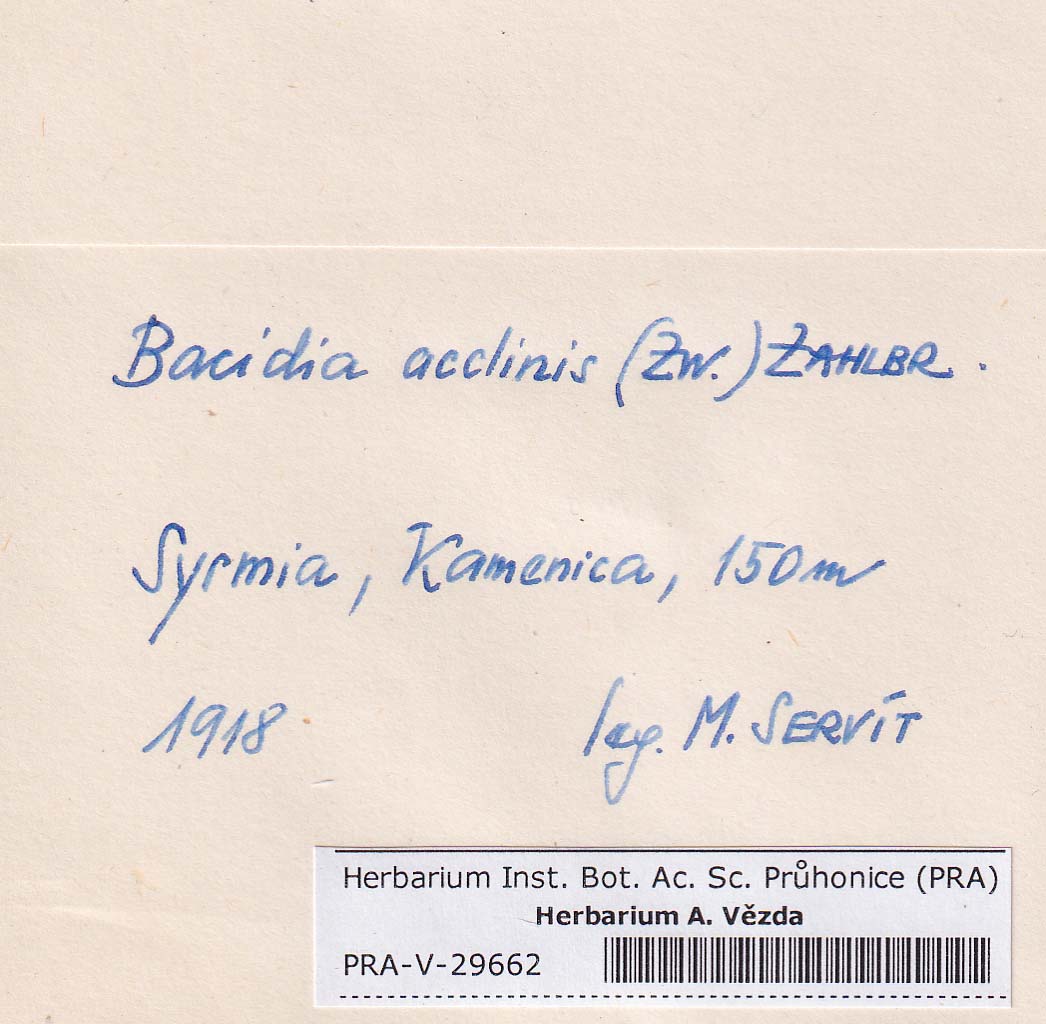 Bacidia acclinis (Zw.) ZAHLBR.
Syrmia, Kamenica, 150m
1918 leg. M. SERVÍT
Herbarium Inst. Bot. Ac. Sc. Průhonice (PRA)
Herbarium A. Vězda
PRA-V-29662